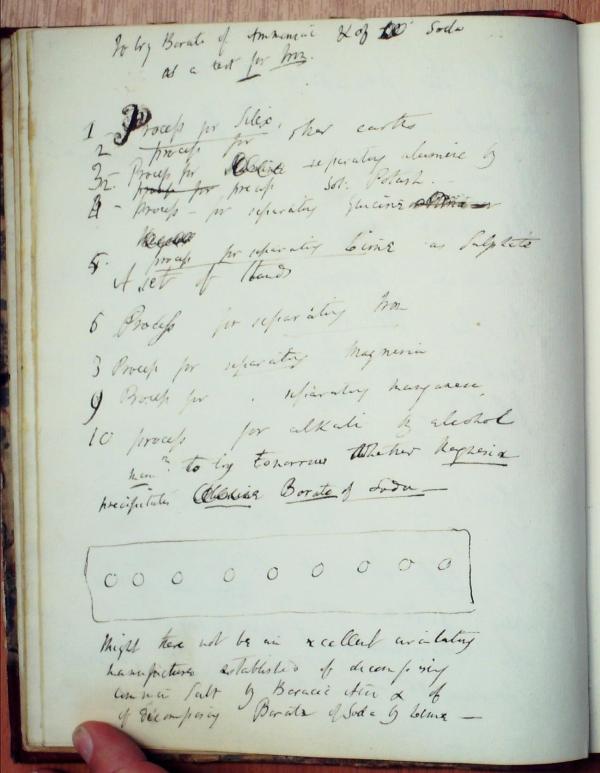 To try Borate of Ammoniac & of Soda
as a test for Iron.
1 - Process for Silex.
2 process for other earths
3 - Process for separating alumine by
process for precip Sol: Potash. -
4 - Process - for separating Glucine
5. process for separating Lime as Sulphate
A set of
6 Process for separating Iron
8 Process for separating Magnesia
9 Process for separating manganese,
10 process for alkali by alcohol
mem^m. to try tomorrow Whether Magnesia
precipitates Borate of Soda -
Might there not be an excellent circulating
manufactures established of decomposing
common Salt by Boracic Acid & of
of decomposing Borate of Soda by Lime -